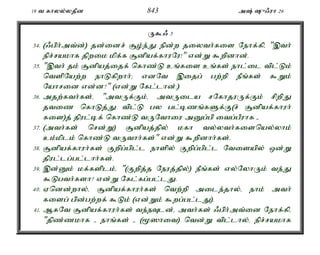 19 வ காலல்லதீன 843 அஷ் ஷுஃரா 26
ருகூஃ 3
34. (ஃபிர்அவ்ன்) தன்னைச் சூழ்ந்து நின்ற தலைவர்களை நோக்கி, "இவர்
நிச்சயமாக திறமை மிக்க சூனியக்காரரே!" என்று கூறினான்.
35. "இவர் தம் சூனியத்தைக் கொண்டு உங்களை உங்கள் நாட்டை விட்டும்
வெளியேற்ற நாடுகிறார்; எனவே இதைப் பற்றி நீங்கள் கூறும்
யோசனை என்ன?" (என்று கேட்டான்.)
36. அதற்கவர்கள். "அவருக்கும், அவருடைய சகோதரருக்கும் சிறிது
தவணை கொடுத்து விட்டு பல பட்டிணங்களுக்கு(ச் சூனியக்காரர்
களை)த் திரட்டிக் கொண்டு வருவோரை அனுப்பி வைப்பீராக -
37. (அவர்கள் சென்று) சூனியத்தில் மகா வல்லவர்களையெல்லாம்
உம்மிடம் கொண்டு வருவார்கள்" என்று கூறினார்கள்.
38. சூனியக்காரர்கள் குறிப்பிட்ட நாளில் குறிப்பிட்ட வேளையில் ஒன்று
திரட்டப்பட்டார்கள்.
39. இன்னும் மக்களிடம். "(குறித்த நேரத்தில்) நீங்கள் எல்லோரும் வந்து
கூடுபவர்களா? என்று கேட்கப்பட்டது.
40. ஏனென்றால், சூனியக்காரர்கள் வெற்றி அடைந்தால், நாம் அவர்
களைப் பின்பற்றக் கூடும் (என்றும் கூறப்பட்டது).
41. ஆகவே சூனியக்காரர்கள் வந்தவுடன், அவர்கள் ஃபிர்அவ்னை நோக்கி,
"திண்ணமாக - நாங்கள் - (மூஸாவை) வென்று விட்டால், நிச்சயமாக